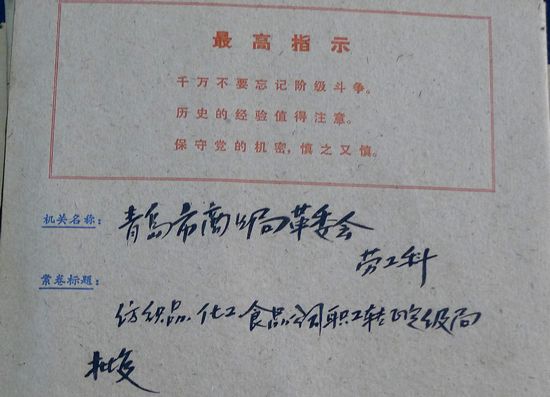 最高指示
千万不要忘记阶级斗争。
历史的经验值得注意。
保守党的机密,慎之又慎。
机关名称: 青岛市商业局革委会
劳工科
案卷标题:
纺织品、化工、食品公司职工转正定级局
批复